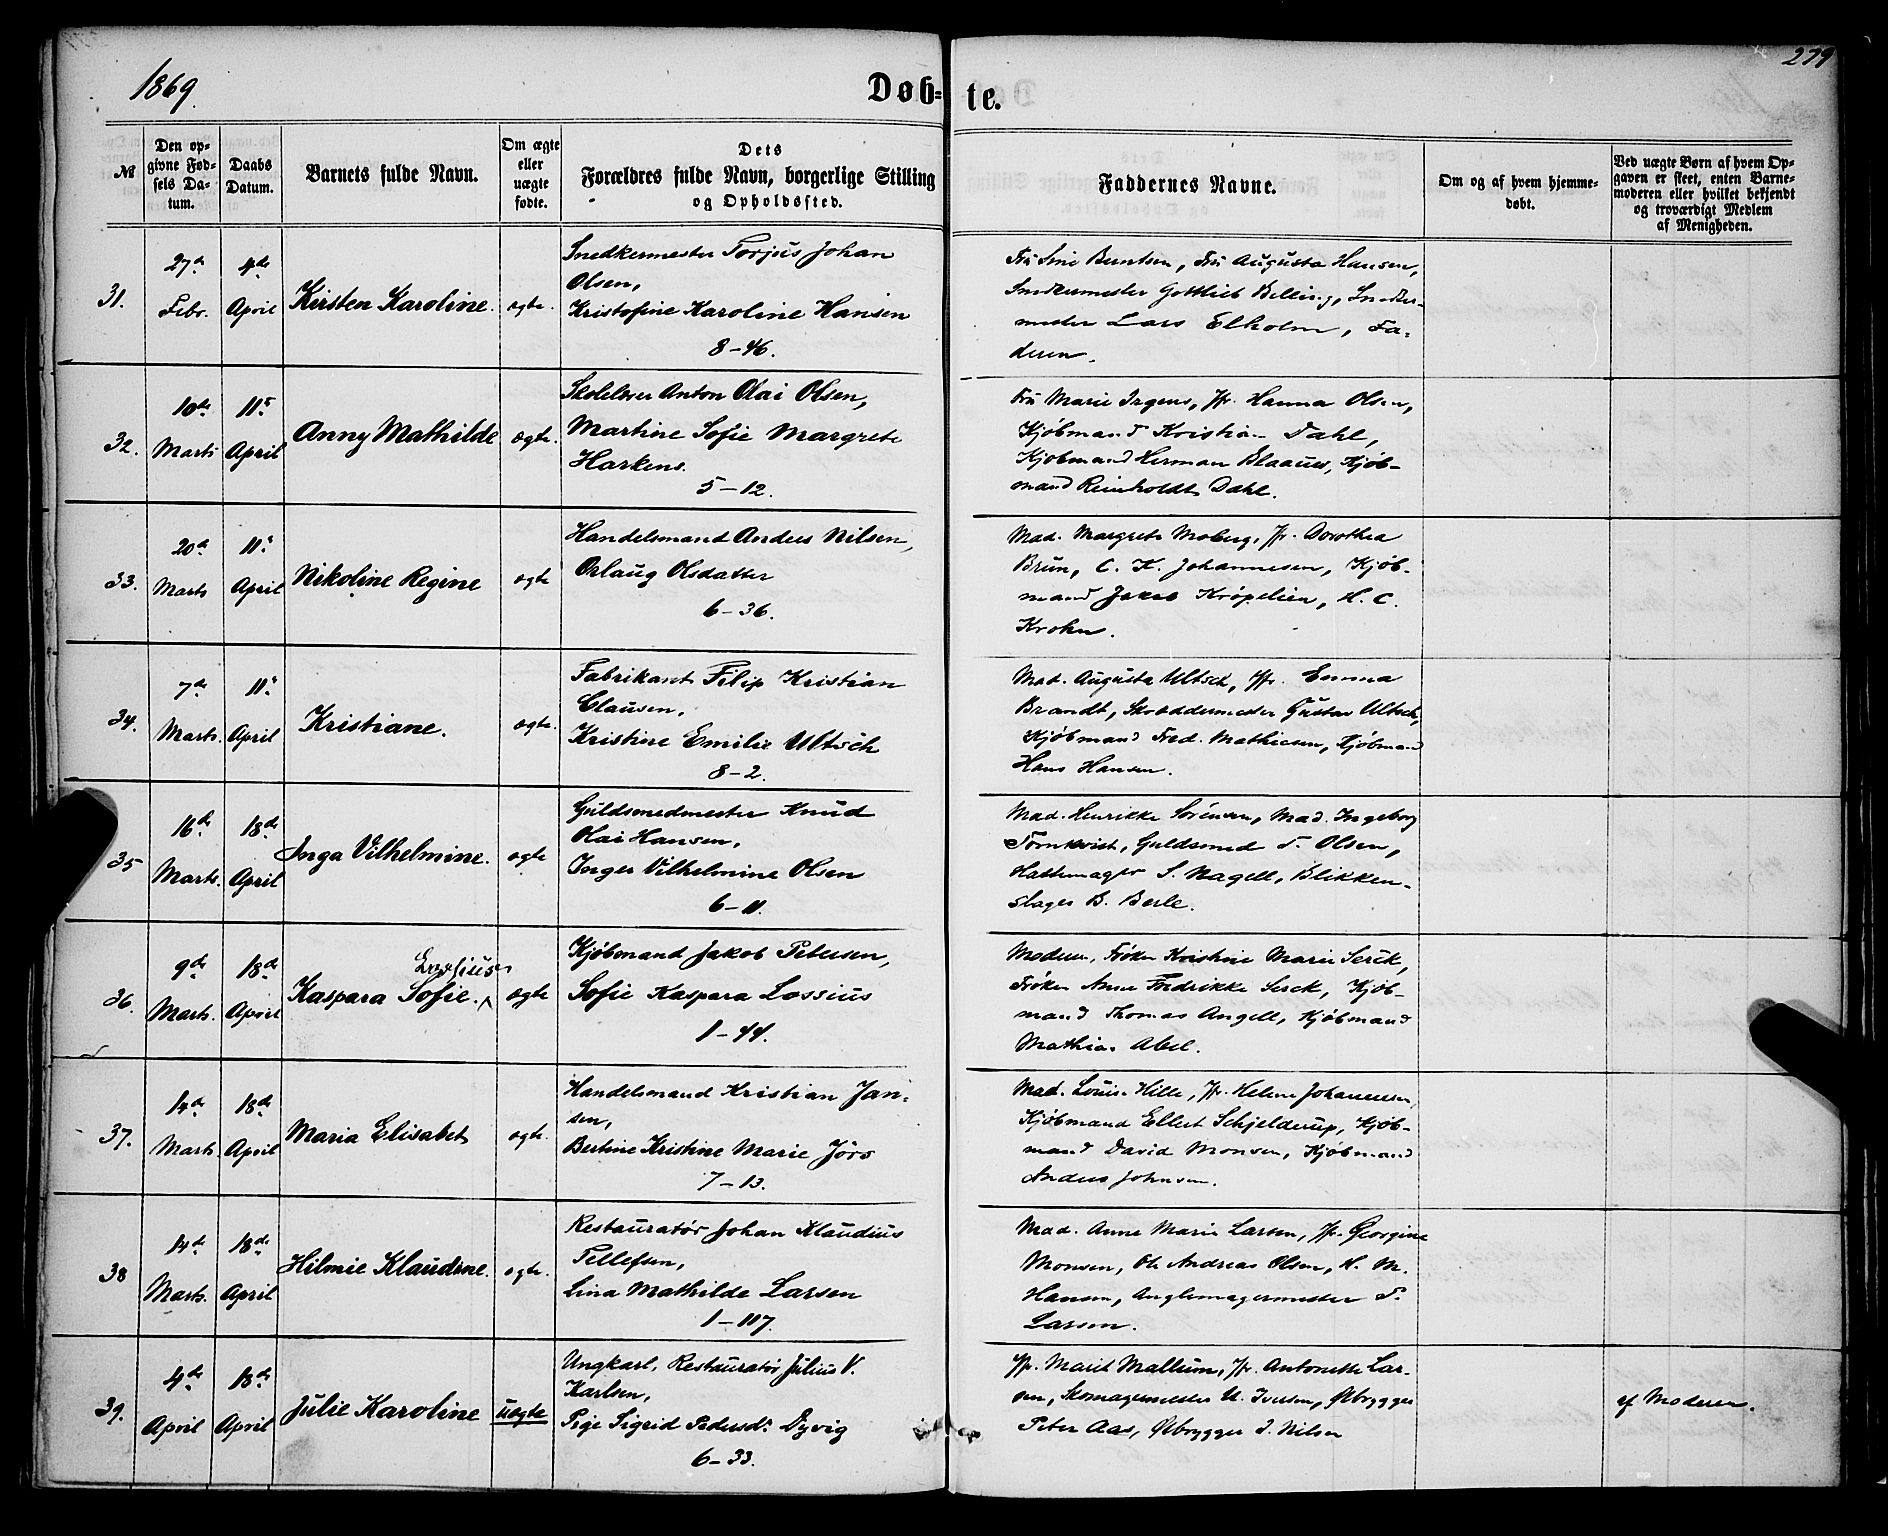 1869.
Døb-te.
279
№
Den op-
givne Fød-
sels Da-
tum.
Daabs
Datum.
Barnets fulde Navn.
Om ægte
eller
uægte
fødte.
Dets
Forældres fulde Navn, borgerlige Stilling
og Opholdssted.
Faddernes Navne.
Om og af hvem hjemme-
døbt.
Ved uægte Børn af hvem Op-
gaven er skeet, enten Barne-
moderen eller hvilket bekjendt
og troværdigt Medlem
af Menigheden.
31.
27de
Febr.
4de
April
Kirsten Karoline.
ægte.
Snedkermester Torjus Johan
Olsen,
Kristofine Karoline Hansen
8-46.
Fru Sine Berntsen, Fru Augusta Hansen,
Snedkermester Gottlieb Belling, Snedker-
mester Lars Elholm, Fa-
deren.
32.
10de
Marts
11te
April
Anny Mathilde
ægte.
Skolelærer Anton Olai Olsen,
Martine Sofie Margrete
Harkens.
5-12.
Fru Marie Irgens, Jfr. Hanna Olsen,
Kjøbmand Kristian Dahl,
Kjøbmand Herman Blaauw, Kjøb-
mand Reinholdt Dahl.
33.
20de
Marts
11te
April
Nikoline Regine
ægte
Handelsmand Anders Nilsen,
Orlaug Olsdatter
6-36.
Mad. Margrete Moberg, Jfr. Dorothea
Brun, C. K. Johannesen, Kjøb-
mand Jakob Krøpelien, H. C.
Krohn.
34.
7de
Marts.
11te
April
Kristiane.
ægte.
Fabrikant Filip Kristian
Clausen,
Kristine Emilie Ultsch
8-2.
Mad. Augusta Ultsch, Jfr. Emma
Brandt, Skræddermester Gustav Ultsch,
Kjøbmand Fred. Mathiesen, Kjøbmand
Hans Hansen.
35
16de
Marts.
18de
April
Inga Vilhelmine.
ægte
Guldsmedmester Knud
Olai Hansen,
Inger Vilhelmine Olsen
6-11.
Mad. Henrikke Sørensen, Mad. Ingeborg
Törnkvist, Guldsmed T. Olsen,
Hattemager S. Nagell, Blikken-
slager B. Berle.
36.
9de
Marts.
18de
April
Lossius
Kaspara Sofie.
ægte
Kjøbmand Jakob Petersen,
Sofie Kaspara Lossius
1-44.
Moderen, Frøken Kristine Marie Serck,
Frøken Anne Fredrikke Serck, Kjøb-
mand Thomas Angell, Kjøbmand
Mathias Abel.
37.
14de
Marts
18de
April
Maria Elisabet
ægte.
Handelsmand Kristian Jan-
sen,
Bertine Kristine Marie Jörs
7-13.
Mad. Louise Hille, Jfr. Helene Johannesen,
Kjøbmand Ellert Schjelderup, Kjøb-
mand David Monsen, Kjøbmand
Anders Johnsen.
38
14de
Marts.
18de
April
Hilmie Klaudine.
ægte.
Restauratør Johan Klaudius
Tellefsen,
Lina Mathilde Larsen
1-107.
Mad. Anne Marie Larsen, Jfr. Georgine
Monsen, Ole Andreas Olsen, H. M.
Hansen, Anglemagermester T.
Larsen.
39.
4de
April
18de
April
Julie Karoline
uægte
Ungkarl, Restauratør Julius V.
Karlsen,
Pige Sigrid Pedersdr. Dyvig
6-33.
Jfr. Marit Mallum, Jfr. Antonette Lar-
sen, Skomagermester U. Iversen, Ølbrygger
Peter Aas, Ølbrygger J. Nilsen
af Moderen.